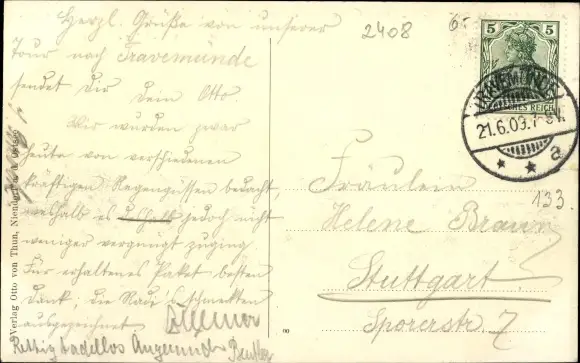 Herzl. Grüße von unserer
Tour nach Travemünde
sendet dir dein Otto.
Wir wurden zwar
heute von verschiedenen
kräftigen Regengüssen bedacht,
weshalb es deshalb jedoch nicht
weniger vergnügt zuging.
Für erhaltenes Paket besten
Dank, die schmeckten
ausgezeichnet
tadellos
2408
6.-
5 5
TRAVEMÜNDE
21.6.09.
* * a
133.
Fräulein
Helene Braun
Stuttgart.
Sporerstr. 7
8
Verlag Otto von Thun, Niendorf a. d. Ostsee